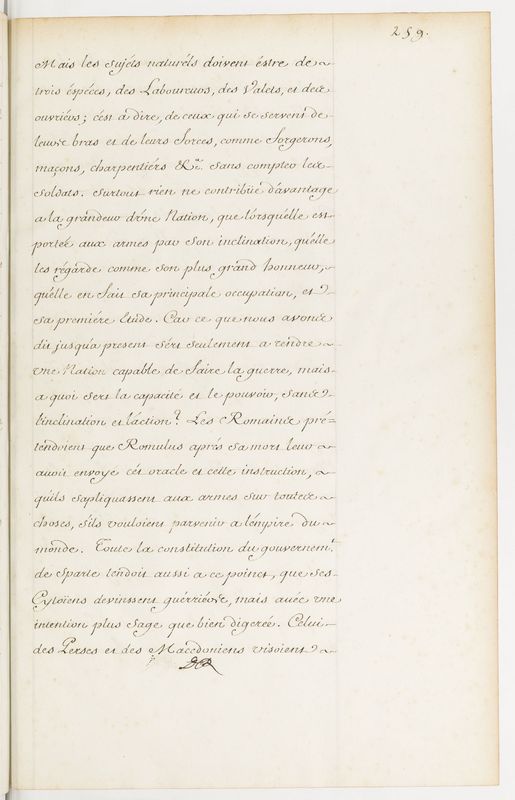 259.
Mais les sujéts naturéls doivent éstre de
trois éspéces, des Laboureurs, des Valets, et des
ouvriérs; cést a dire, de ceux qui se servent de
leurs bras et de leurs forces, comme forgerons,
maçons, charpentiérs &c. sans compter les
soldats. surtout rien ne contribüé dávantage
a la grándeur dúne Nation, que lórsquélle est
portéé aux armes par son inclination, quélle
les régarde comme son plus gránd honneur,
quélle en fait sa principale occupation, et
sa premiére étude. Car ce que nous avons
dit jusquá present sért seulement a réndre
une Nation capable de faire la guerre, mais
a quoi sert la capacité et le pouvoir, sans
línclination et láction? Les Romains pré=
tendoient que Romulus aprés sa mort leur
avoit envoyé cét oracle et cétte instruction,
quils sápliquassent aux armes sur toutes
choses, síls vouloient parvenir a lémpire du
monde. Toute la constitution du gouvernemt.
de Sparte tendoit aussi a ce poinct, que ses
Cytoiens devinssent guérriérs, mais avéc une
intention plus sage que bien digeréé. Celui
des Perses et des Macedoniens visoient